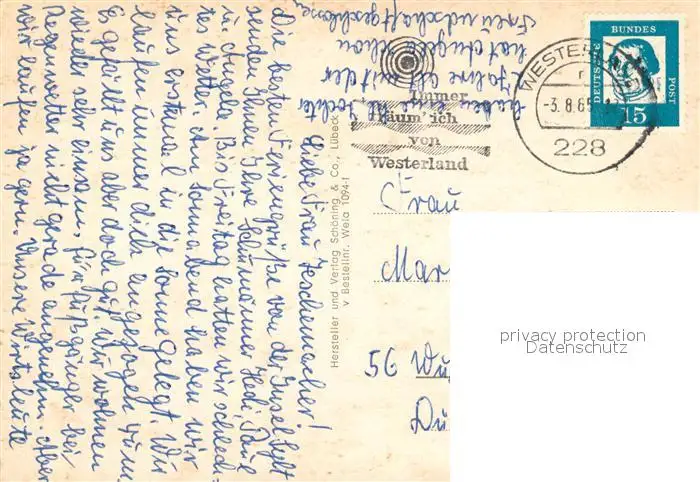 Liebe Frau Teschemacher!
Die besten Feriengrüße von der Insel Sylt
senden Ihnen Ihre Schumänner Hedi, Paul
u. Angela. Bis Freitag hatten wir schlech-
tes Wetter. Am Sonnabend haben wir
uns erstmal in die Sonne gelegt. Wir
laufen immer dick angezogen rum.
Es gefällt uns aber doch gut. Wir wohnen
wieder sehr einsam, für Fußgänger bei
Regenwetter nicht gerade angenehm. Aber
wir laufen ja gern. Unsere Wirtsleute
haben eine Tochter
7 Jahre alt mit der
hat Angela schon
Freundschaft geschlossen
Hersteller und Verlag Schöning & Co., Lübeck
v Bestellnr. Wela 1094-1
Immer
räum' ich
von
Westerland
WESTERLAND
-3.8.65
228
DEUTSCHE
BUNDES
POST
15
Frau
Mar
56 Wu
Du
privacy protection
Datenschutz